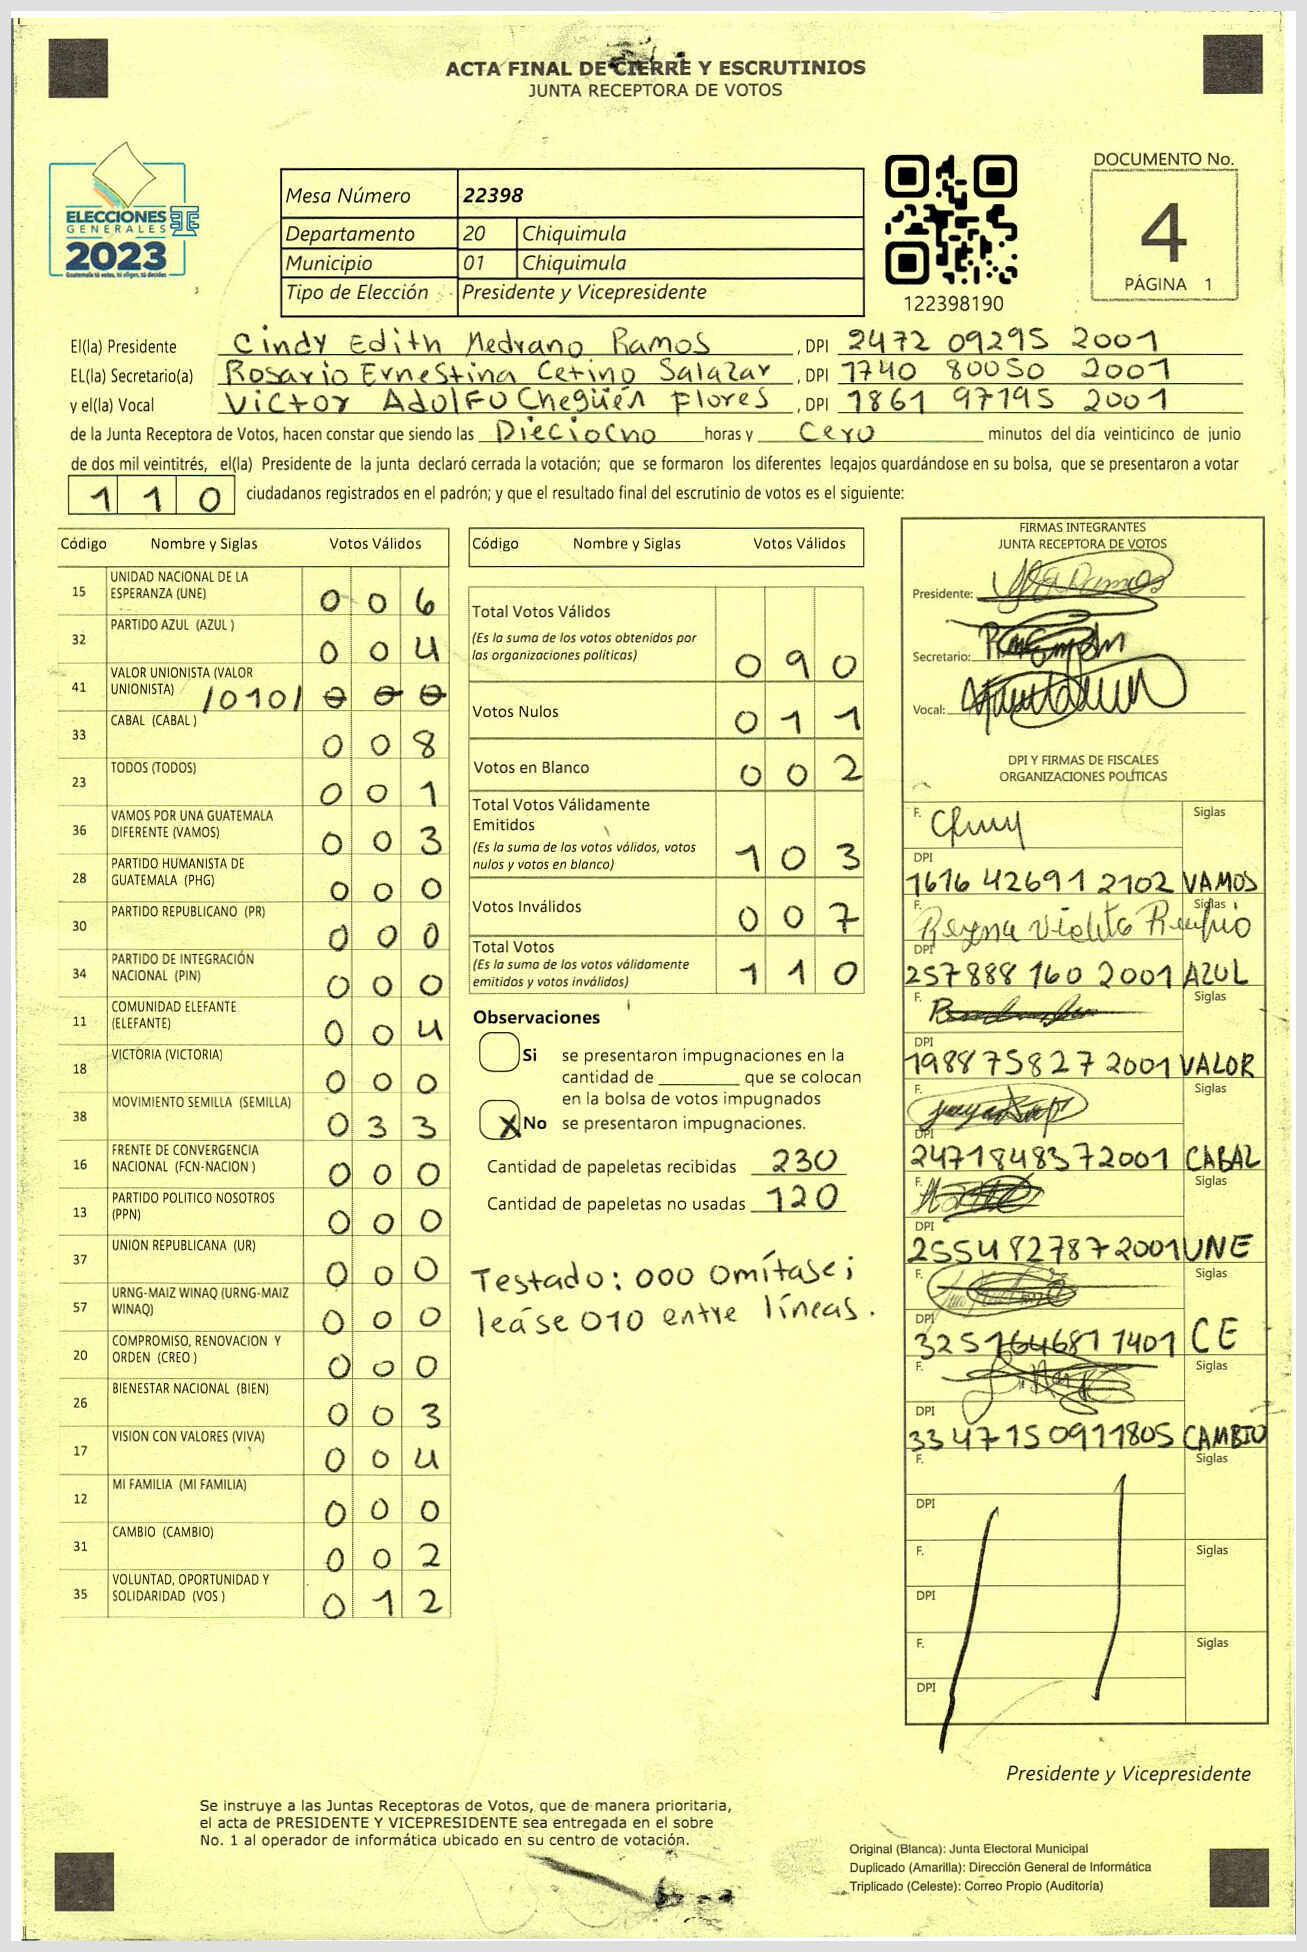 ACTA FINAL DE CIERRE Y ESCRUTINIOS
JUNTA RECEPTORA DE VOTOS
ELECCIONES
GENERALES
2023
Guatemala tú votas, tú eliges, tú decides
Mesa Número 22398
Departamento 20 Chiquimula
Municipio 01 Chiquimula
Tipo de Elección Presidente y Vicepresidente
122398190
DOCUMENTO No.
4
PÁGINA 1
El(la) Presidente Cindy Edith Medrano Ramos , DPI 2472 09295 2001
EL(la) Secretario(a) Rosario Ernestina Cetino Salazar , DPI 1740 80050 2001
y el(la) Vocal Victor Adolfo Chegüén Flores , DPI 1861 97195 2001
de la Junta Receptora de Votos, hacen constar que siendo las Dieciocho horas y Cero minutos del día veinticinco de junio
de dos mil veintitrés, el(la) Presidente de la junta declaró cerrada la votación; que se formaron los diferentes legajos guardándose en su bolsa, que se presentaron a votar
110 ciudadanos registrados en el padrón; y que el resultado final del escrutinio de votos es el siguiente:
Código Nombre y Siglas Votos Válidos
15 UNIDAD NACIONAL DE LA ESPERANZA (UNE) 0 0 6
32 PARTIDO AZUL (AZUL ) 0 0 4
41 VALOR UNIONISTA (VALOR UNIONISTA) /010/ 0 0 0
33 CABAL (CABAL ) 0 0 8
23 TODOS (TODOS) 0 0 1
36 VAMOS POR UNA GUATEMALA DIFERENTE (VAMOS) 0 0 3
28 PARTIDO HUMANISTA DE GUATEMALA (PHG) 0 0 0
30 PARTIDO REPUBLICANO (PR) 0 0 0
34 PARTIDO DE INTEGRACIÓN NACIONAL (PIN) 0 0 0
11 COMUNIDAD ELEFANTE (ELEFANTE) 0 0 4
18 VICTORIA (VICTORIA) 0 0 0
38 MOVIMIENTO SEMILLA (SEMILLA) 0 3 3
16 FRENTE DE CONVERGENCIA NACIONAL (FCN-NACION ) 0 0 0
13 PARTIDO POLITICO NOSOTROS (PPN) 0 0 0
37 UNION REPUBLICANA (UR) 0 0 0
57 URNG-MAIZ WINAQ (URNG-MAIZ WINAQ) 0 0 0
20 COMPROMISO, RENOVACION Y ORDEN (CREO ) 0 0 0
26 BIENESTAR NACIONAL (BIEN) 0 0 3
17 VISION CON VALORES (VIVA) 0 0 4
12 MI FAMILIA (MI FAMILIA) 0 0 0
31 CAMBIO (CAMBIO) 0 0 2
35 VOLUNTAD, OPORTUNIDAD Y SOLIDARIDAD (VOS ) 0 1 2
Código Nombre y Siglas Votos Válidos
Total Votos Válidos
(Es la suma de los votos obtenidos por
las organizaciones políticas) 0 9 0
Votos Nulos 0 1 1
Votos en Blanco 0 0 2
Total Votos Válidamente
Emitidos
(Es la suma de los votos válidos, votos
nulos y votos en blanco) 1 0 3
Votos Inválidos 0 0 7
Total Votos
(Es la suma de los votos válidamente
emitidos y votos inválidos) 1 1 0
Observaciones
Si se presentaron impugnaciones en la
cantidad de ________ que se colocan
en la bolsa de votos impugnados
X No se presentaron impugnaciones.
Cantidad de papeletas recibidas 230
Cantidad de papeletas no usadas 120
Testado: 000 Omítase;
leáse 010 entre líneas.
FIRMAS INTEGRANTES
JUNTA RECEPTORA DE VOTOS
Presidente:
Secretario:
Vocal:
DPI Y FIRMAS DE FISCALES
ORGANIZACIONES POLÍTICAS
F. Siglas
DPI
1616 42691 2102 VAMOS
F. Reyna Violeta Siglas
DPI
257888 160 2001 AZUL
F. Siglas
DPI
198875827 2001 VALOR
F. Siglas
DPI
247184837 2001 CABAL
F. Siglas
DPI
255482787 2001 UNE
F. Siglas
DPI
325164681 1401 CE
F. Siglas
DPI
334715091 1805 CAMBIO
F. Siglas
DPI
F. Siglas
DPI
F. Siglas
DPI
Presidente y Vicepresidente
Se instruye a las Juntas Receptoras de Votos, que de manera prioritaria,
el acta de PRESIDENTE Y VICEPRESIDENTE sea entregada en el sobre
No. 1 al operador de informática ubicado en su centro de votación.
Original (Blanca): Junta Electoral Municipal
Duplicado (Amarilla): Dirección General de Informática
Triplicado (Celeste): Correo Propio (Auditoría)